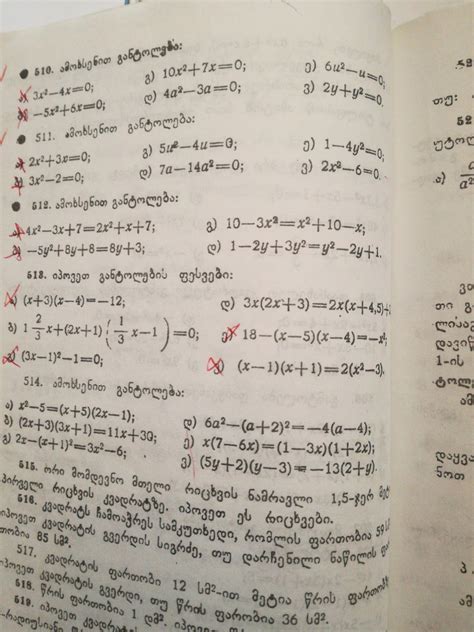 510. ამოხსენით განტოლება:
ა) 3x²−4x=0; გ) 10x²+7x=0; ე) 6u²−u=0;
ბ) −5x²+6x=0; დ) 4a²−3a=0; ვ) 2y+y²=0.
511. ამოხსენით განტოლება:
ა) 2x²+3x=0; გ) 5u²−4u=0; ე) 1−4y²=0;
ბ) 3x²−2=0; დ) 7a−14a²=0; ვ) 2x²−6=0.
512. ამოხსენით განტოლება:
ა) 4x²−3x+7=2x²+x+7; გ) 10−3x²=x²+10−x;
ბ) −5y²+8y+8=8y+3; დ) 1−2y+3y²=y²−2y+1.
513. იპოვეთ განტოლების ფესვები:
ა) (x+3)(x−4)=−12; დ) 3x(2x+3)=2x(x+4,5)+
ბ) 1 2/3 x+(2x+1)(1/3 x−1)=0; ე) 18−(x−5)(x−4)=−x²
გ) (3x−1)²−1=0; ვ) (x−1)(x+1)=2(x²−3).
514. ამოხსენით განტოლება:
ა) x²−5=(x+5)(2x−1); დ) 6a²−(a+2)²=−4(a−4);
ბ) (2x+3)(3x+1)=11x+30; ე) x(7−6x)=(1−3x)(1+2x);
გ) 2x−(x+1)²=3x²−6; ვ) (5y+2)(y−3)=−13(2+y).
515. ორი მომდევნო მთელი რიცხვის ნამრავლი 1,5-ჯერ მეტ
პირველი რიცხვის კვადრატზე. იპოვეთ ეს რიცხვები.
516. კვადრატს ჩამოაჭრეს სამკუთხედი, რომლის ფართობია 59 სმ
იპოვეთ კვადრატის გვერდის სიგრძე, თუ დარჩენილი ნაწილის ფა
თობია 85 სმ².
517. კვადრატის ფართობი 12 სმ²-ით მეტია წრის ფართობ
იპოვეთ კვადრატის გვერდი, თუ წრის ფართობია 36 სმ².
518. წრის ფართობია 1 დმ². იპოვეთ
519. იპოვეთ
-რადიუსიანი